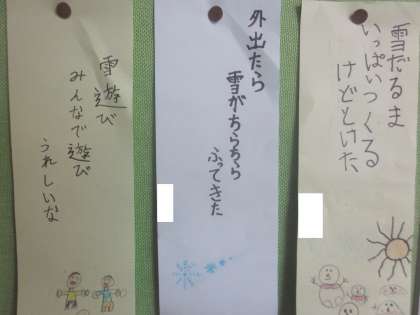 雪だるま
いっぱいつくる
けどとけた
外出たら
雪がちらちら
ふってきた
雪遊び
みんなで遊び
うれしいな